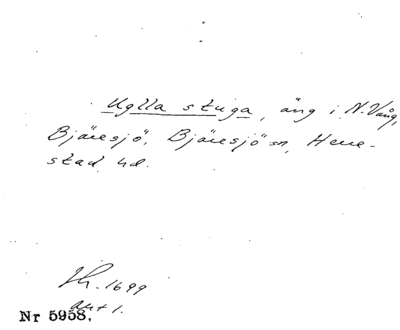 Uglla stuga, äng i N. Vång,
Bjäresjö, Bjäresjö sn, Herre-
stad hd.
Lh. 1699
akt 1.
Nr 5958.